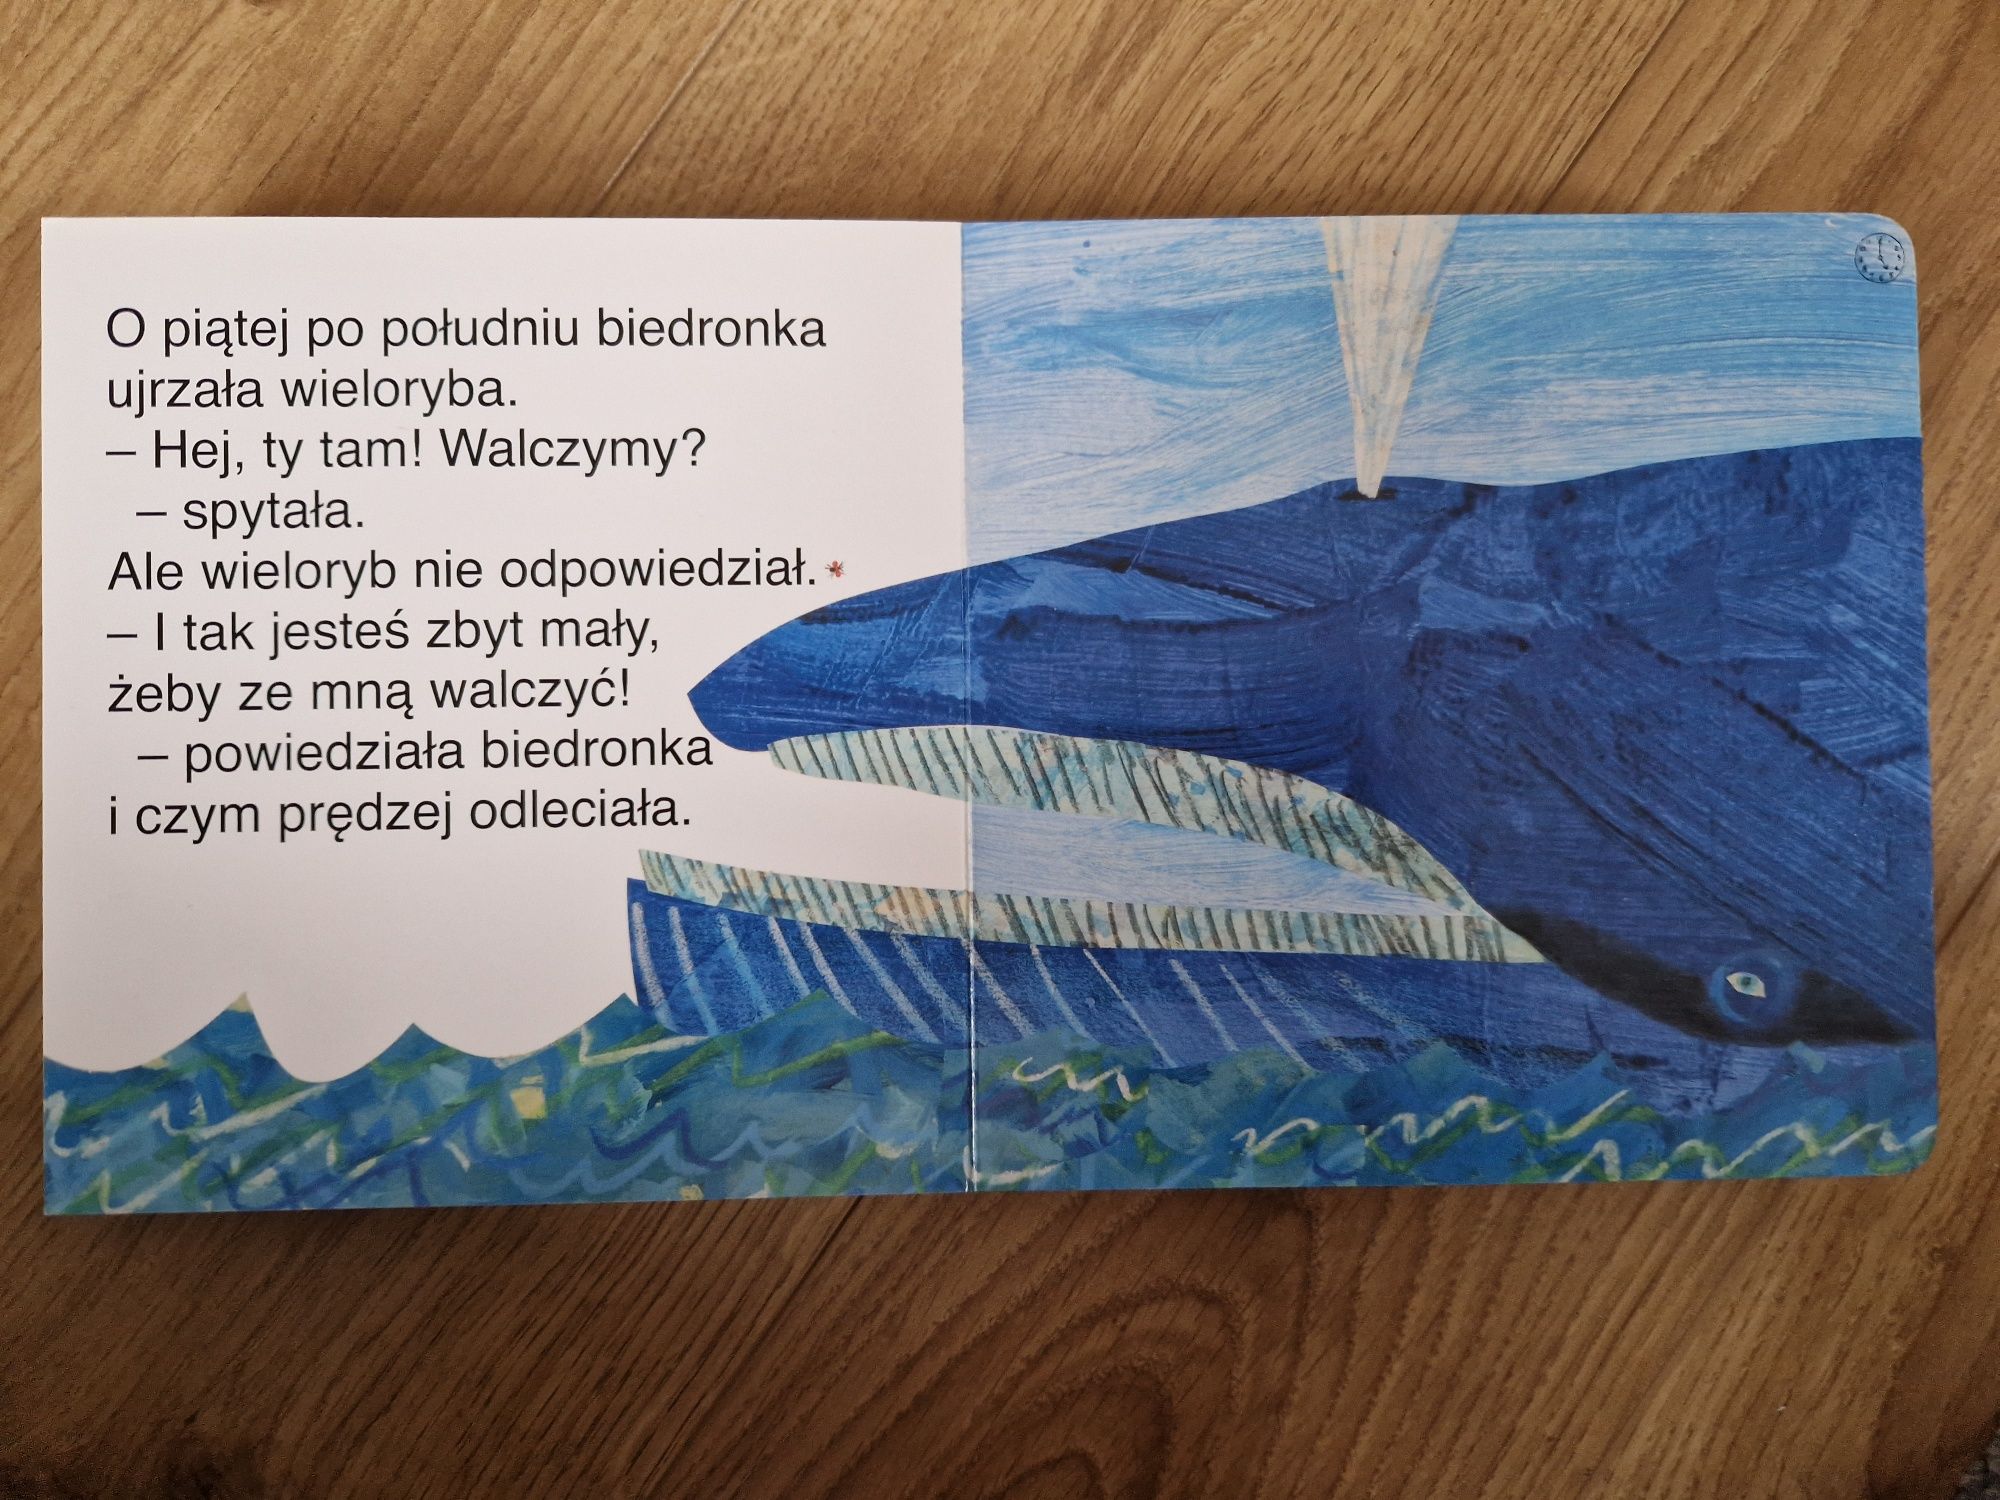 O piątej po południu biedronka
ujrzała wieloryba.
– Hej, ty tam! Walczymy?
– spytała.
Ale wieloryb nie odpowiedział.
– I tak jesteś zbyt mały,
żeby ze mną walczyć!
– powiedziała biedronka
i czym prędzej odleciała.